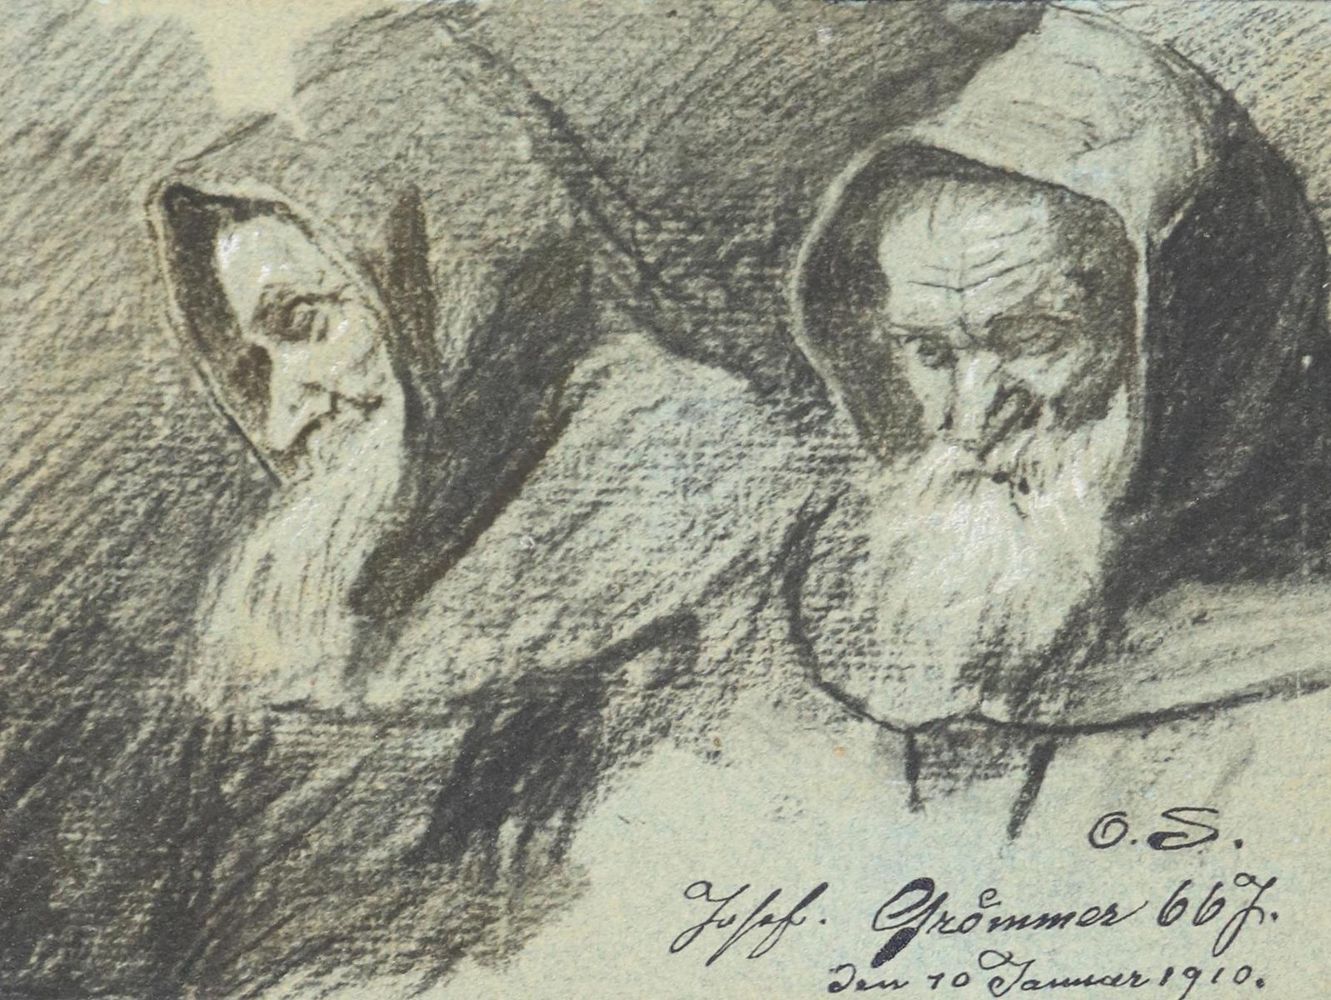 O. S.
Josef. Grömmer 66 J.
den 10 Januar 1910.